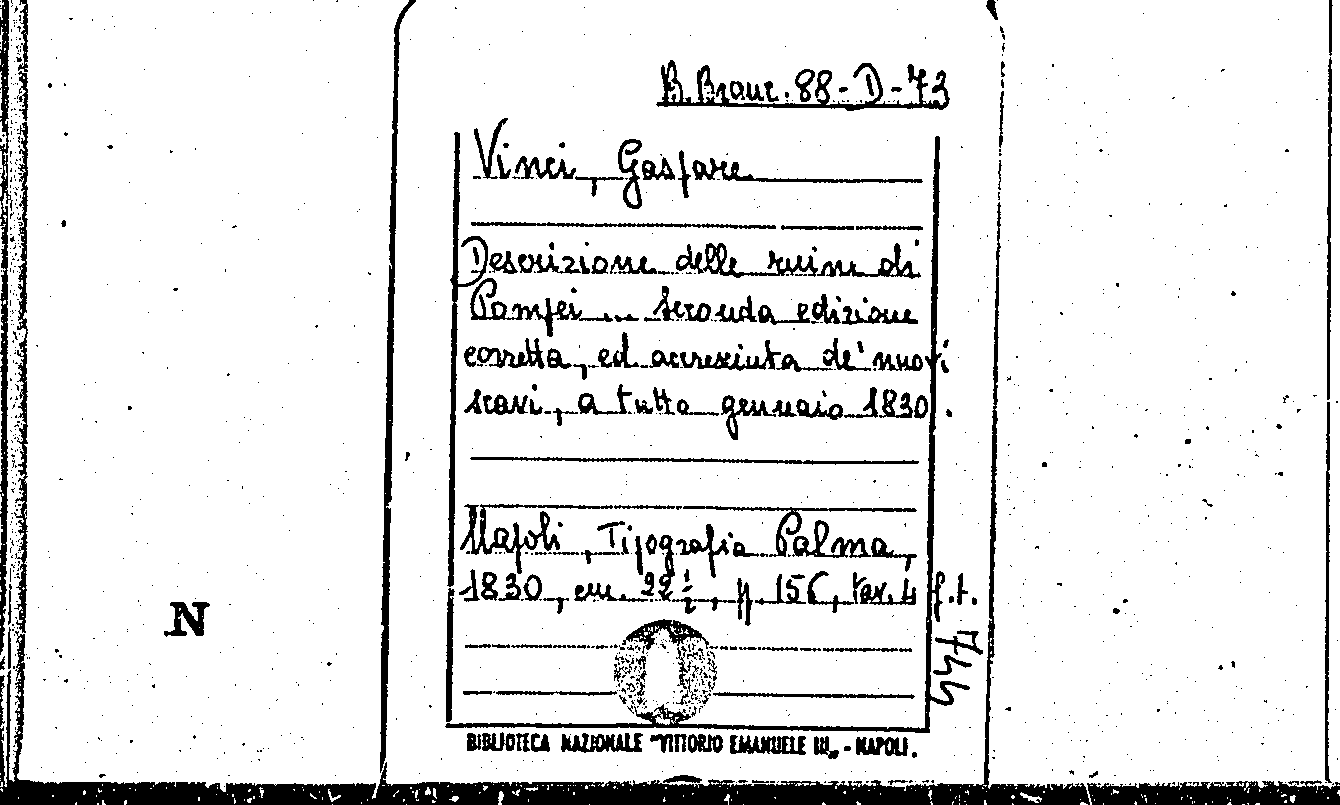 B. Branc. 88-D-73
Vinci, Gaspare
Descrizione delle ruine di
Pompei ... seconda edizione
corretta, ed accresciuta de' nuovi
scavi, a tutto gennaio 1830.
Napoli, Tipografia Palma,
1830, cm. 22½, pp. 156, tav. 4 f.t.
N
BIBLIOTECA NAZIONALE "VITTORIO EMANUELE III" - NAPOLI.